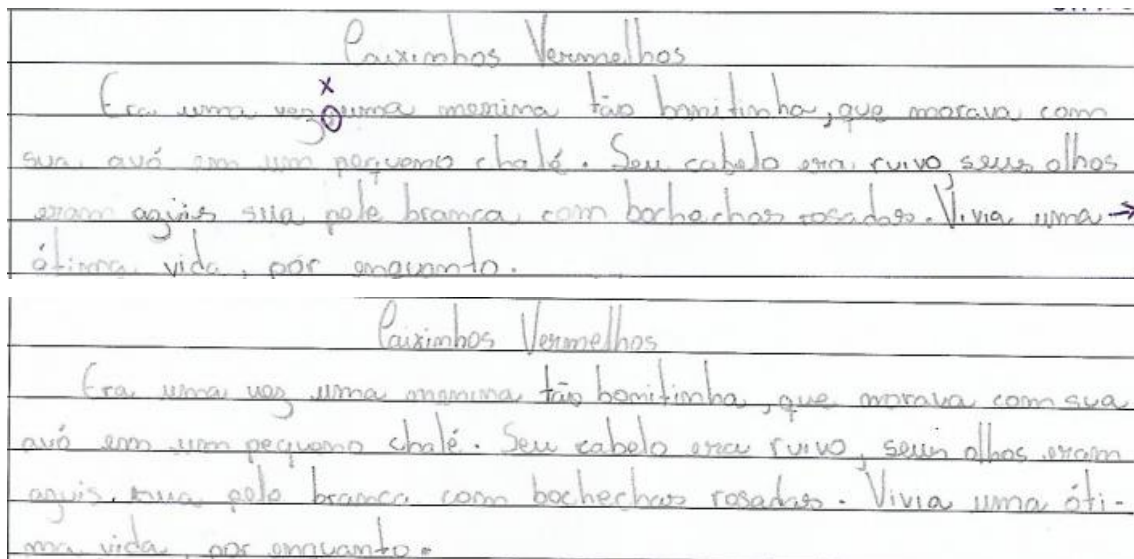 Caixinhos Vermelhos
Era uma vez uma menina tão bonitinha, que morava com
sua avó em um pequeno chalé. Seu cabelo era ruivo, seus olhos
eram azuis sua pele branca com bochechas rosadas. Vivia uma →
ótima vida, por enquanto.
Caixinhos Vermelhos
Era uma vez uma menina tão bonitinha, que morava com sua
avó em um pequeno chalé. Seu cabelo era ruivo, seus olhos eram
azuis, sua pele branca com bochechas rosadas. Vivia uma óti-
ma vida, por enquanto.